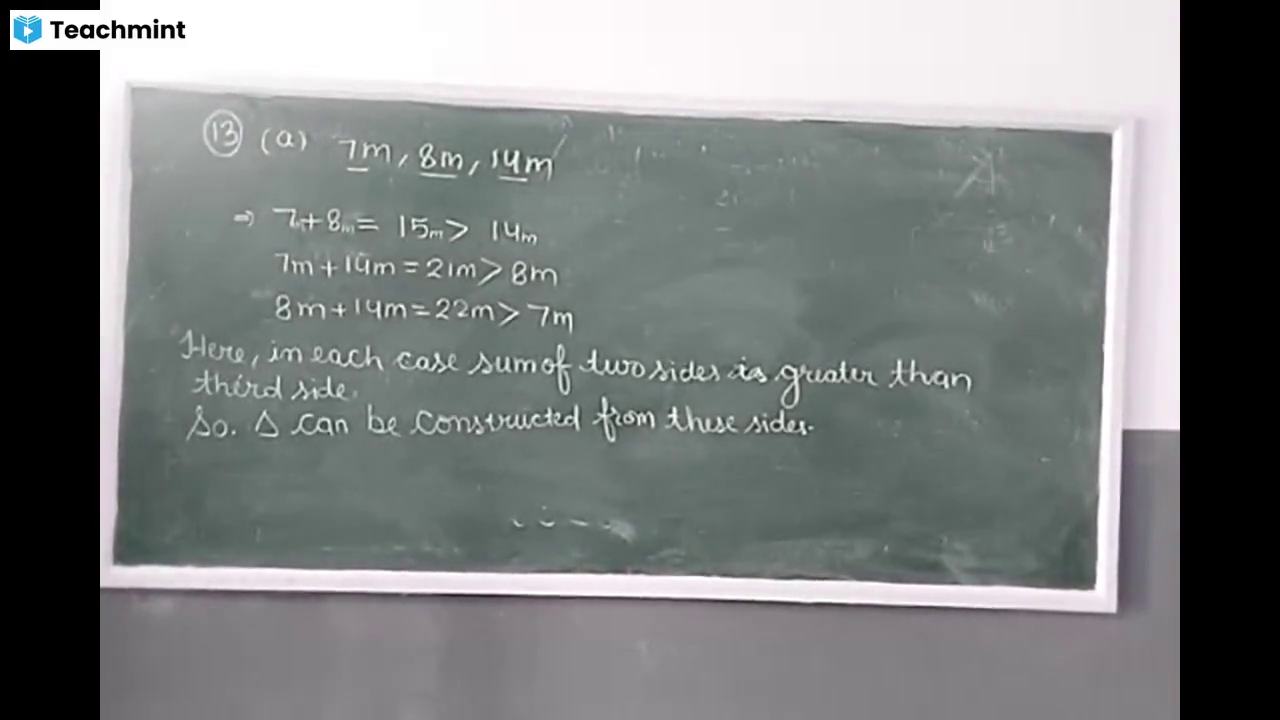 Teachmint
13 (a) 7m, 8m, 14m
⇒ 7m+8m= 15m> 14m
7m+14m=21m>8m
8m+14m=22m>7m
Here, in each case sum of two sides is greater than
third side.
So. Δ can be constructed from these sides.